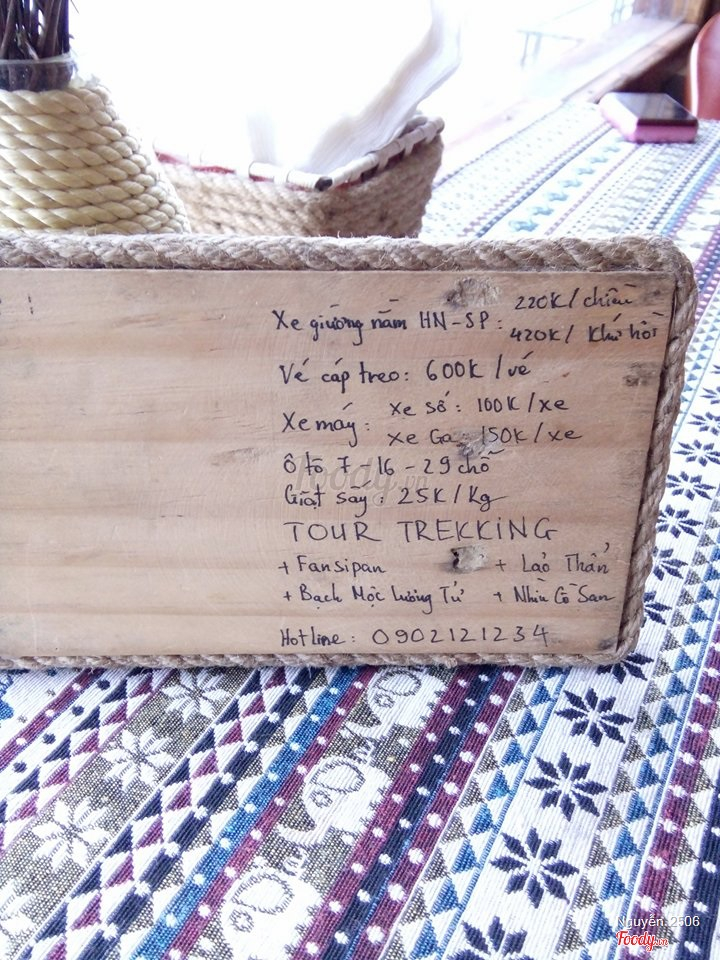 Xe giường nằm HN-SP: 220K/chiều
420K/ khứ hồi
Vé cáp treo: 600K/vé
Xe máy: Xe số: 100K/xe
Xe Ga: 150K/xe
Ô tô 7-16-29 chỗ
Giặt sấy: 25K/Kg
TOUR TREKKING
+ Fansipan + Lảo Thẩn
+ Bạch Mộc Lương Tử + Nhìu Cồ San
Hotline: 0902121234
foody.vn
Nguyễn. 2506
Foody.vn